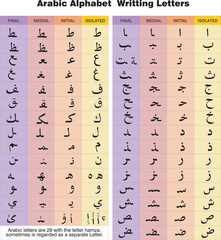 Arabic Alphabet Writting Letters
FINAL MEDIAL INITIAL ISOLATED
ـط ـطـ طـ ط
ـظ ـظـ ظـ ظ
ـع ـعـ عـ ع
ـغ ـغـ غـ غ
ـف ـفـ فـ ف
ـق ـقـ قـ ق
ـك ـكـ كـ ك
ـل ـلـ لـ ل
ـم ـمـ مـ م
ـن ـنـ نـ ن
ـه ـهـ هـ ه
ـو ـو و و
ـي ـيـ يـ ي
Arabic letters are 29 with the letter hamza,
sometimes is regarded as a separate Letter
FINAL MEDIAL INITIAL ISOLATED
ـا ـا ا ا
ـب ـبـ بـ ب
ـت ـتـ تـ ت
ـث ـثـ ثـ ث
ـج ـجـ جـ ج
ـح ـحـ حـ ح
ـخ ـخـ خـ خ
ـد ـد د د
ـذ ـذ ذ ذ
ـر ـر ر ر
ـز ـز ز ز
ـس ـسـ سـ س
ـش ـشـ شـ ش
ـص ـصـ صـ ص
ـض ـضـ ضـ ض